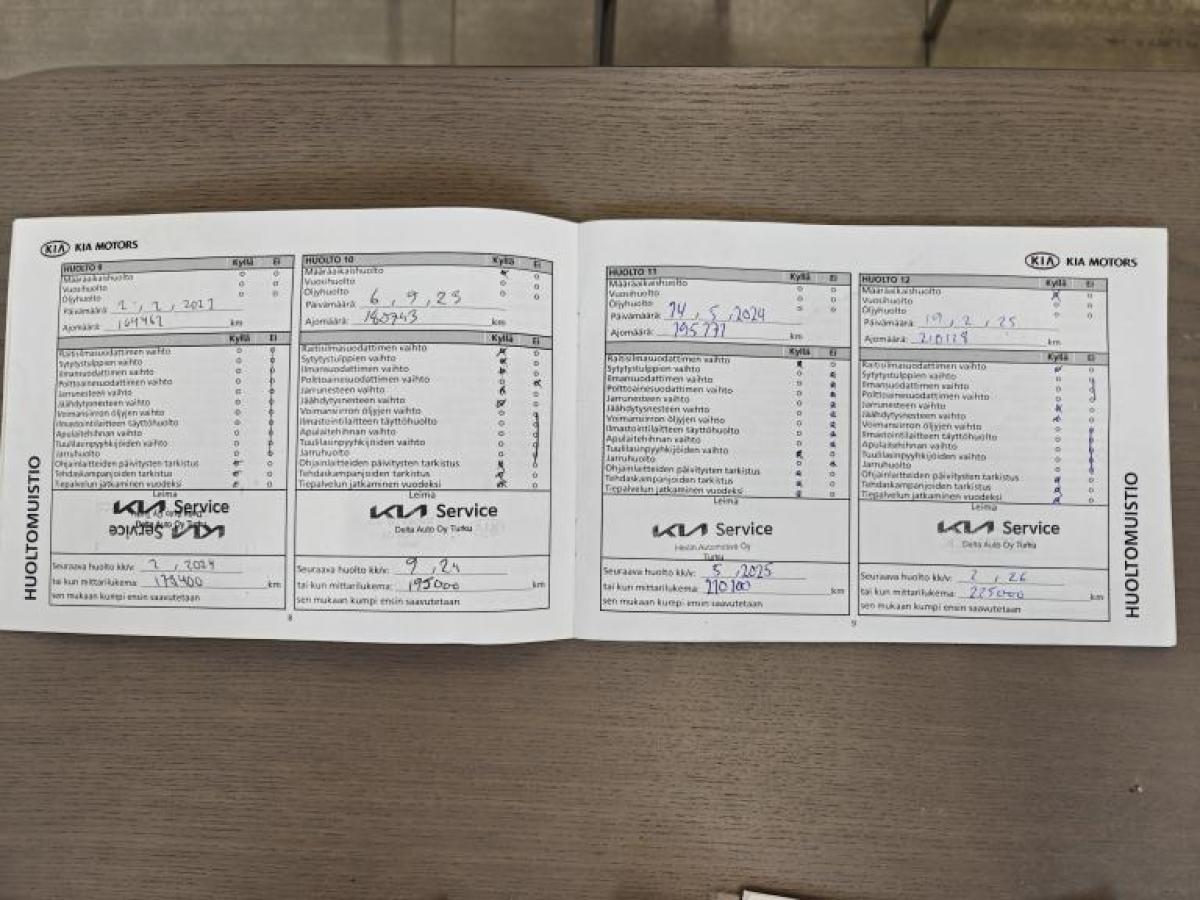 KIA KIA MOTORS
HUOLTOMUISTIO
HUOLTO 9 Kyllä Ei
Määräaikaishuolto
Vuosihuolto
Öljyhuolto
Päivämäärä:
Ajomäärä: km
Kyllä Ei
Raitisilmasuodattimen vaihto
Sytytystulppien vaihto
Ilmansuodattimen vaihto
Polttoainesuodattimen vaihto
Jarrunesteen vaihto
Jäähdytysnesteen vaihto
Voimansiirron öljyjen vaihto
Ilmastointilaitteen täyttöhuolto
Apulaitehihnan vaihto
Tuulilasinpyyhkijöiden vaihto
Jarruhuolto
Ohjainlaitteiden päivitysten tarkistus
Tehdaskampanjoiden tarkistus
Tiepalvelun jatkaminen vuodeksi
Leima
KIA Service
Delta Auto Oy Turku
KIA Service
Seuraava huolto kk/v: 2, 2024
tai kun mittarilukema: 179400 km
sen mukaan kumpi ensin saavutetaan
8
HUOLTO 10 Kyllä Ei
Määräaikaishuolto
Vuosihuolto
Öljyhuolto
Päivämäärä: 6, 9, 23
Ajomäärä: 180743 km
Kyllä Ei
Raitisilmasuodattimen vaihto
Sytytystulppien vaihto
Ilmansuodattimen vaihto
Polttoainesuodattimen vaihto
Jarrunesteen vaihto
Jäähdytysnesteen vaihto
Voimansiirron öljyjen vaihto
Ilmastointilaitteen täyttöhuolto
Apulaitehihnan vaihto
Tuulilasinpyyhkijöiden vaihto
Jarruhuolto
Ohjainlaitteiden päivitysten tarkistus
Tehdaskampanjoiden tarkistus
Tiepalvelun jatkaminen vuodeksi
Leima
KIA Service
Delta Auto Oy Turku
Seuraava huolto kk/v: 9, 24
tai kun mittarilukema: 195000 km
sen mukaan kumpi ensin saavutetaan
KIA KIA MOTORS
HUOLTOMUISTIO
HUOLTO 11 Kyllä Ei
Määräaikaishuolto
Vuosihuolto
Öljyhuolto
Päivämäärä: 14, 5, 2024
Ajomäärä: 195777 km
Kyllä Ei
Raitisilmasuodattimen vaihto
Sytytystulppien vaihto
Ilmansuodattimen vaihto
Polttoainesuodattimen vaihto
Jarrunesteen vaihto
Jäähdytysnesteen vaihto
Voimansiirron öljyjen vaihto
Ilmastointilaitteen täyttöhuolto
Apulaitehihnan vaihto
Tuulilasinpyyhkijöiden vaihto
Jarruhuolto
Ohjainlaitteiden päivitysten tarkistus
Tehdaskampanjoiden tarkistus
Tiepalvelun jatkaminen vuodeksi
Leima
KIA Service
Hedin Automotive Oy
Turku
Seuraava huolto kk/v: 5, 2025
tai kun mittarilukema: 210700 km
sen mukaan kumpi ensin saavutetaan
9
HUOLTO 12 Kyllä Ei
Määräaikaishuolto
Vuosihuolto
Öljyhuolto
Päivämäärä: 19, 2, 25
Ajomäärä: 210128 km
Kyllä Ei
Raitisilmasuodattimen vaihto
Sytytystulppien vaihto
Ilmansuodattimen vaihto
Polttoainesuodattimen vaihto
Jarrunesteen vaihto
Jäähdytysnesteen vaihto
Voimansiirron öljyjen vaihto
Ilmastointilaitteen täyttöhuolto
Apulaitehihnan vaihto
Tuulilasinpyyhkijöiden vaihto
Jarruhuolto
Ohjainlaitteiden päivitysten tarkistus
Tehdaskampanjoiden tarkistus
Tiepalvelun jatkaminen vuodeksi
Leima
KIA Service
Delta Auto Oy Turku
Seuraava huolto kk/v: 2, 26
tai kun mittarilukema: 225000 km
sen mukaan kumpi ensin saavutetaan